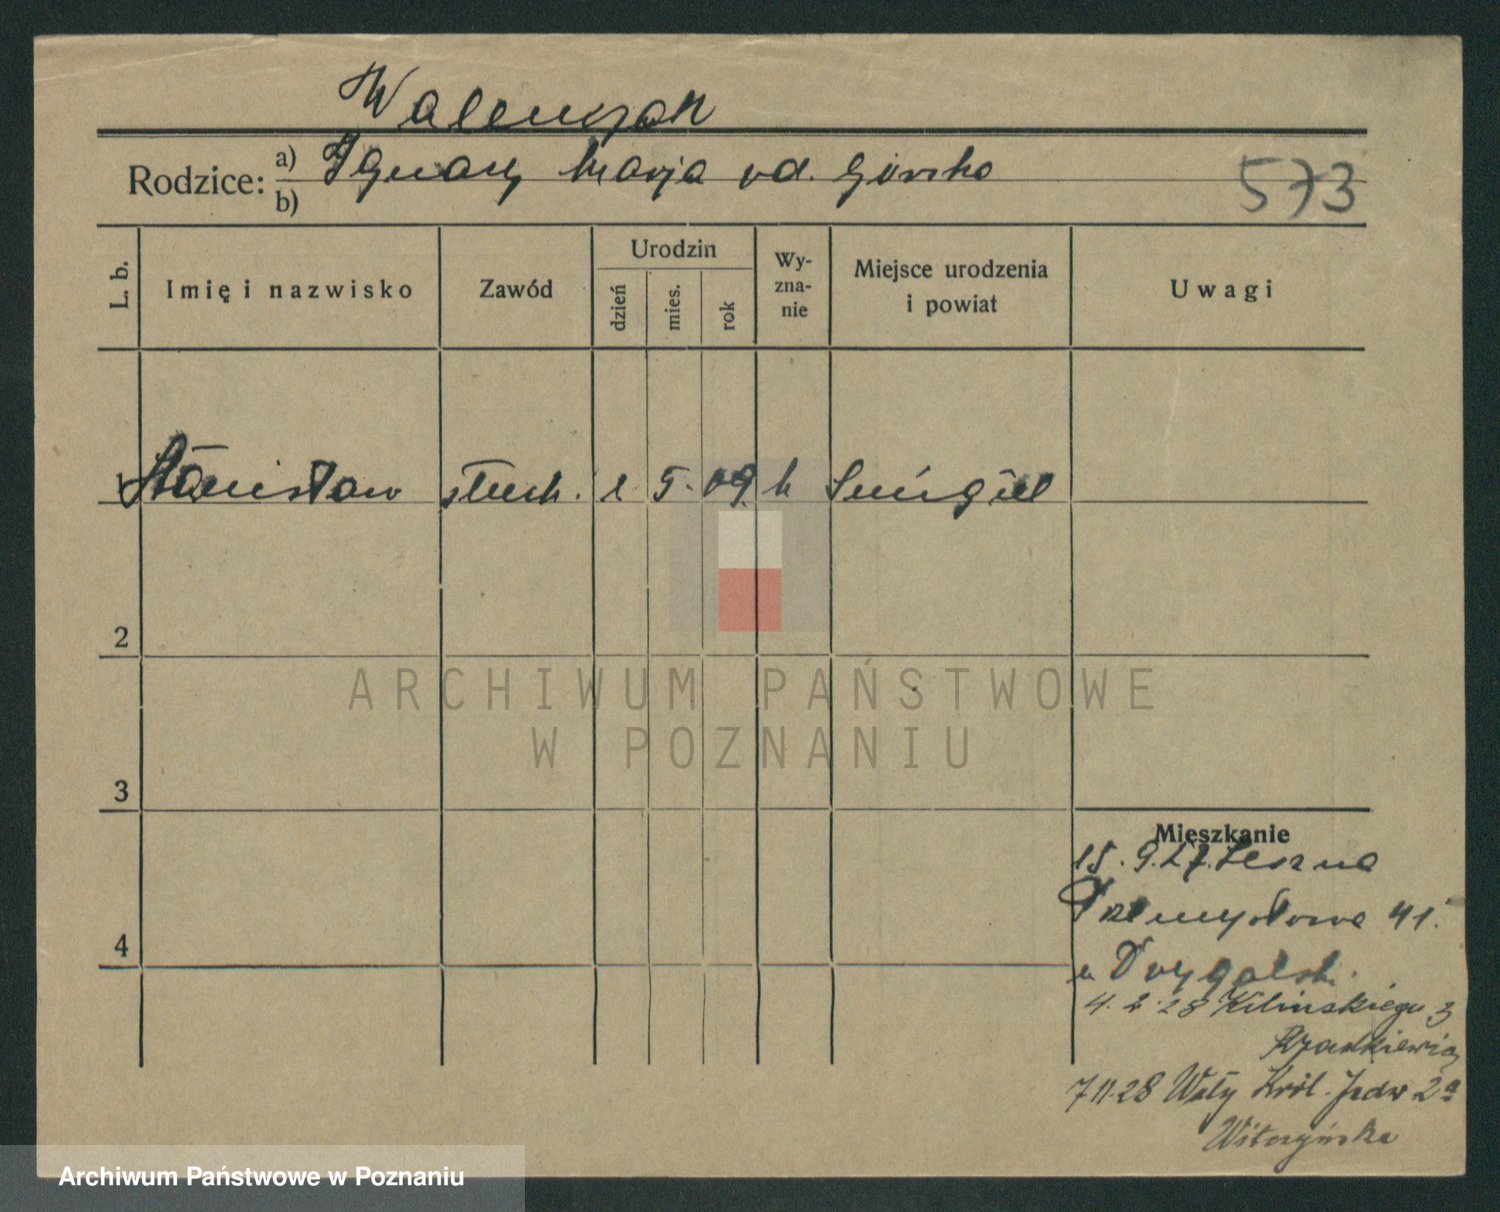 Walenczak
Rodzice: a) Ignacy Marja od. Górska
b)
573
L. b.
Imię i nazwisko
Zawód
Urodzin
dzień
mies.
rok
Wy-
zna-
nie
Miejsce urodzenia
i powiat
Uwagi
1 Stanisław słuch. 1. 5. 09 k Śmigiel
2
3
4
ARCHIWUM PAŃSTWOWE
W POZNANIU
Mieszkanie
15.9.27. Leszna
Przemysłowa 41.
u Drygalsk.
4. 2. 28 Kilińskiego 3
Rzadkiewicz
7 11.28 Wały Król. Jadw 2a
Witczyńska
Archiwum Państwowe w Poznaniu